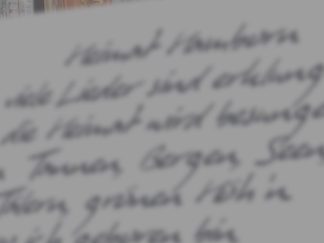 Heimat Hamborn
viele Lieder sind erklungen
die Heimat wird besungen
Tannen, Bergen, Seen,
Tälern, grünen Höh'n
ich geboren bin